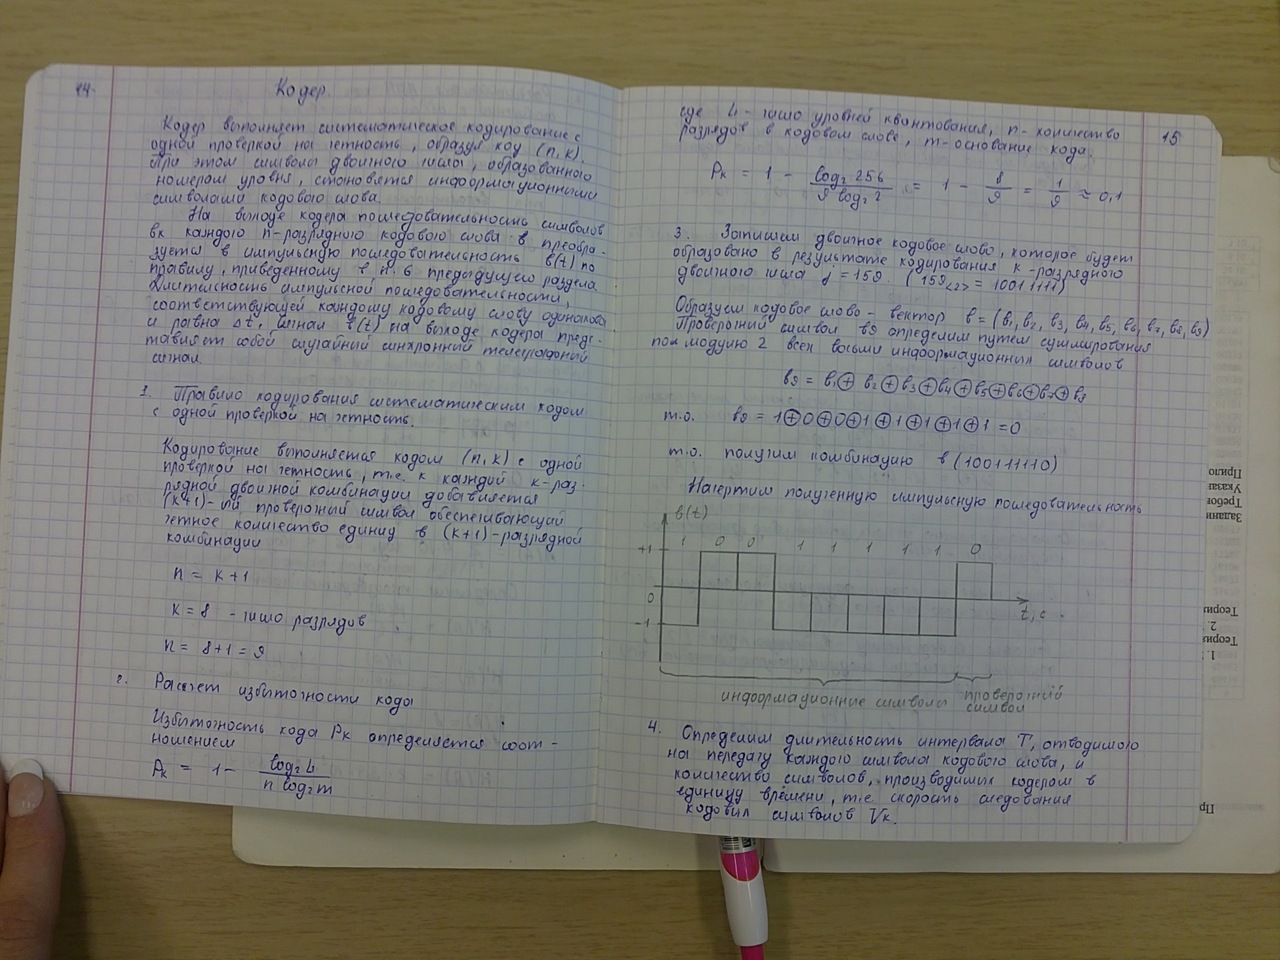 14
Кодер.
Кодер выполняет систематическое кодирование с
одной проверкой на четность, образуя код (n, k).
При этом символы двоичного числа, образованного
номером уровня, становятся информационными
символами кодового слова.
На выходе кодера последовательность символов
bк каждого n-разрядного кодового слова b преобра-
зуется в импульсную последовательность b(t) по
правилу, приведенному в п. 6 предыдущего раздела
Длительность импульсной последовательности,
соответствующей каждому кодовому слову одинакова
и равна Δt, сигнал b(t) на выходе кодера предс-
тавляет собой случайный синхронный телеграфный
сигнал.
1. Правило кодирования систематическим кодом
с одной проверкой на четность.
Кодирование выполняется кодом (n, k) с одной
проверкой на четность, т.е. к каждой k-раз-
рядной двоичной комбинации добавляется
(k+1)-ый проверочный символ обеспечивающий
четное количество единиц в (k+1)-разрядной
комбинации
n = k+1
k = 8 - число разрядов
n = 8+1 = 9
2. Расчет избыточности кода
Избыточность кода Pк определяется соот-
ношением
Pк = 1 - log₂ L / n log₂ m
15
где L - число уровней квантования, n - количество
разрядов в кодовом слове, m - основание кода.
Pк = 1 - log₂ 256 / 9 log₂ 2 = 1 - 8/9 = 1/9 ≈ 0,1
3. Запишем двоичное кодовое слово, которое будет
образовано в результате кодирования k-разрядного
двоичного числа j = 159 (159<2> = 10011111)
Образуем кодовое слово - вектор b = (b₁, b₂, b₃, b₄, b₅, b₆, b₇, b₈, b₉)
Проверочный символ b9 определим путем суммирования
по модулю 2 всех восьми информационных символов
b₉ = b₁ ⊕ b₂ ⊕ b₃ ⊕ b₄ ⊕ b₅ ⊕ b₆ ⊕ b₇ ⊕ b₈
т.о. b₉ = 1⊕0⊕0⊕1⊕1⊕1⊕1⊕1 = 0
т.о. получим комбинацию b (100111110)
Начертим полученную импульсную последовательность
b(t)
1 0 0 1 1 1 1 1 0
+1
0
-1
t, c
информационные символы проверочный
символ
4. Определим длительность интервала T, отводимого
на передачу каждого символа кодового слова, и
количество символов, производимых кодером в
единицу времени, т.е. скорость следования
кодовых символов Vк.
Прило
Указа
Требов
Задани
Теори
2.
Теори
1.
Пр